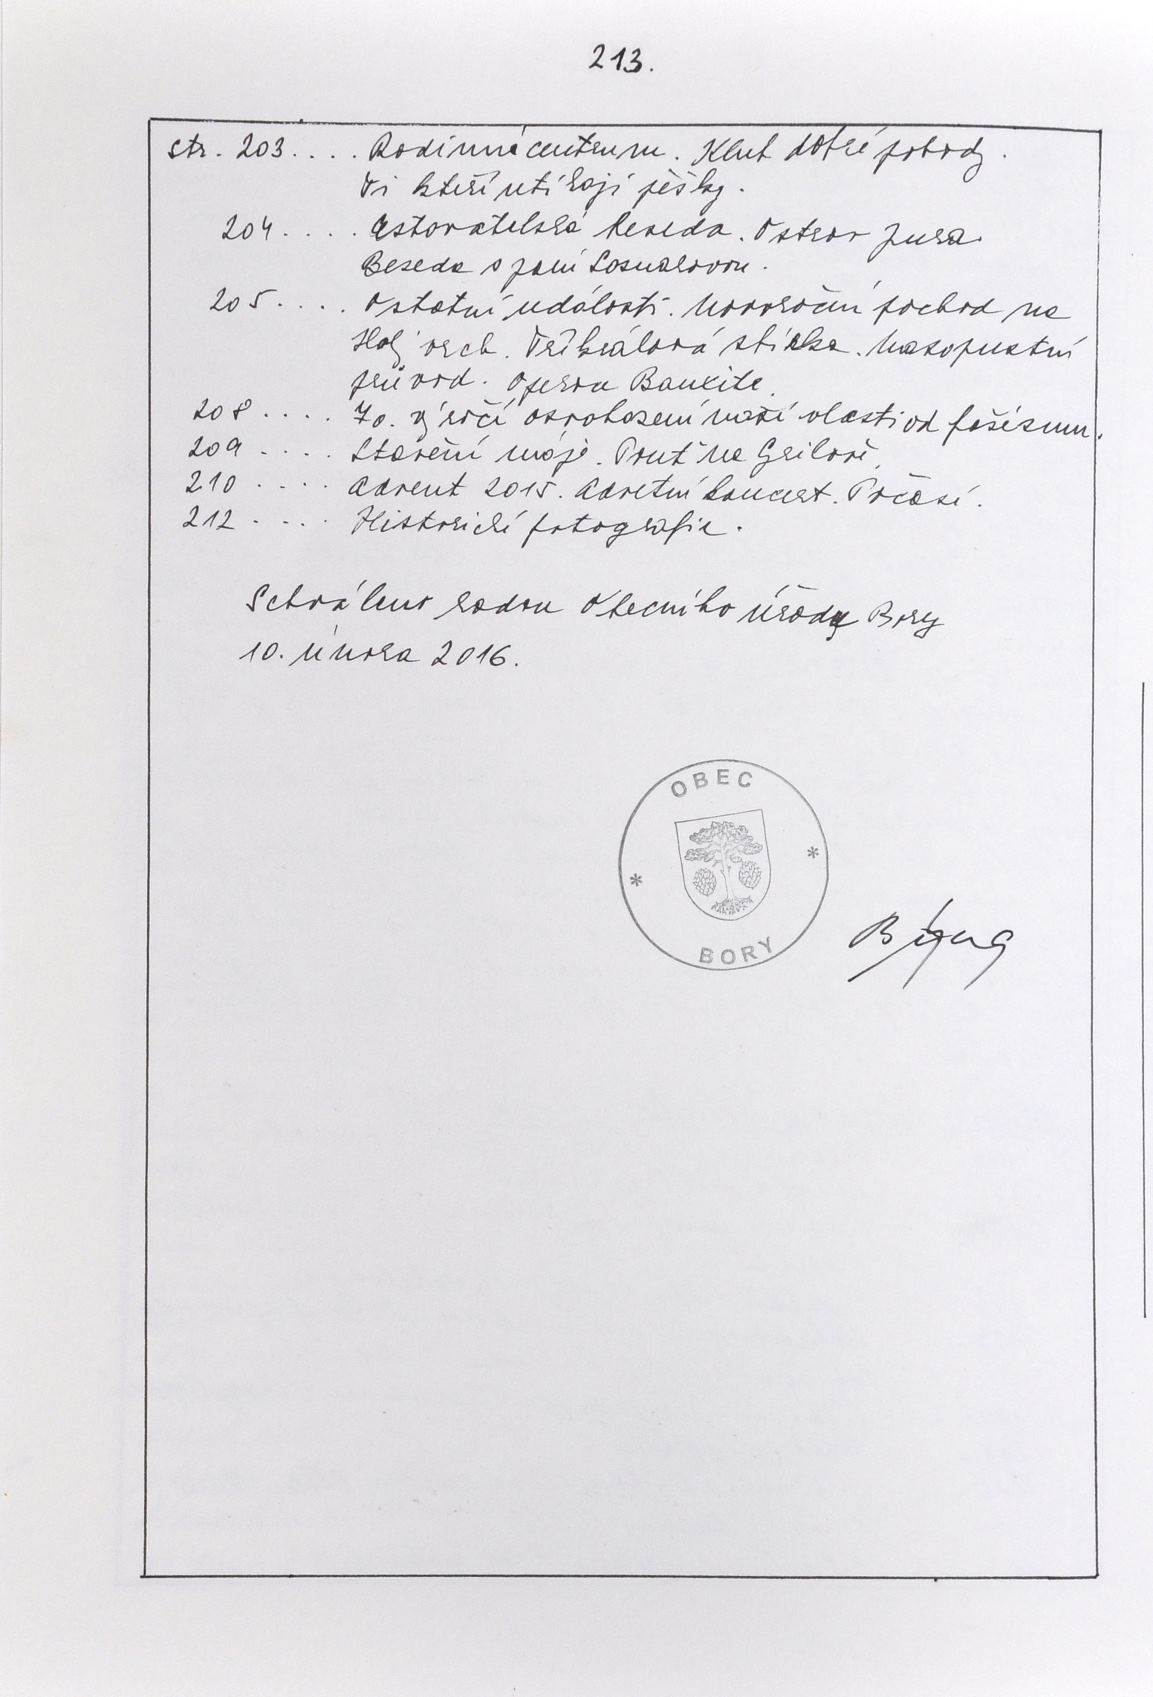 213.
str. 203.... Rodinné centrum. Klub dobré pohody.
Ti kteří utíkají pěšky.
204.... Cestovatelská beseda. Ostrov Jura.
Beseda s paní Losnarovou.
205.... Ostatní události. Novoroční pochod na
Holý vrch. Tříkrálová sbírka. Masopustní
průvod. Opera Bauxite.
208.... 70. výročí osvobození naší vlasti od fašismu.
209.... Stavění máje. Pouť na
210.... Advent 2015. Advetní koncert. Počasí.
212.... Historické fotografie.
Schváleno radou Obecního úřadu Bory
10. února 2016.
OBEC
* *
BORY